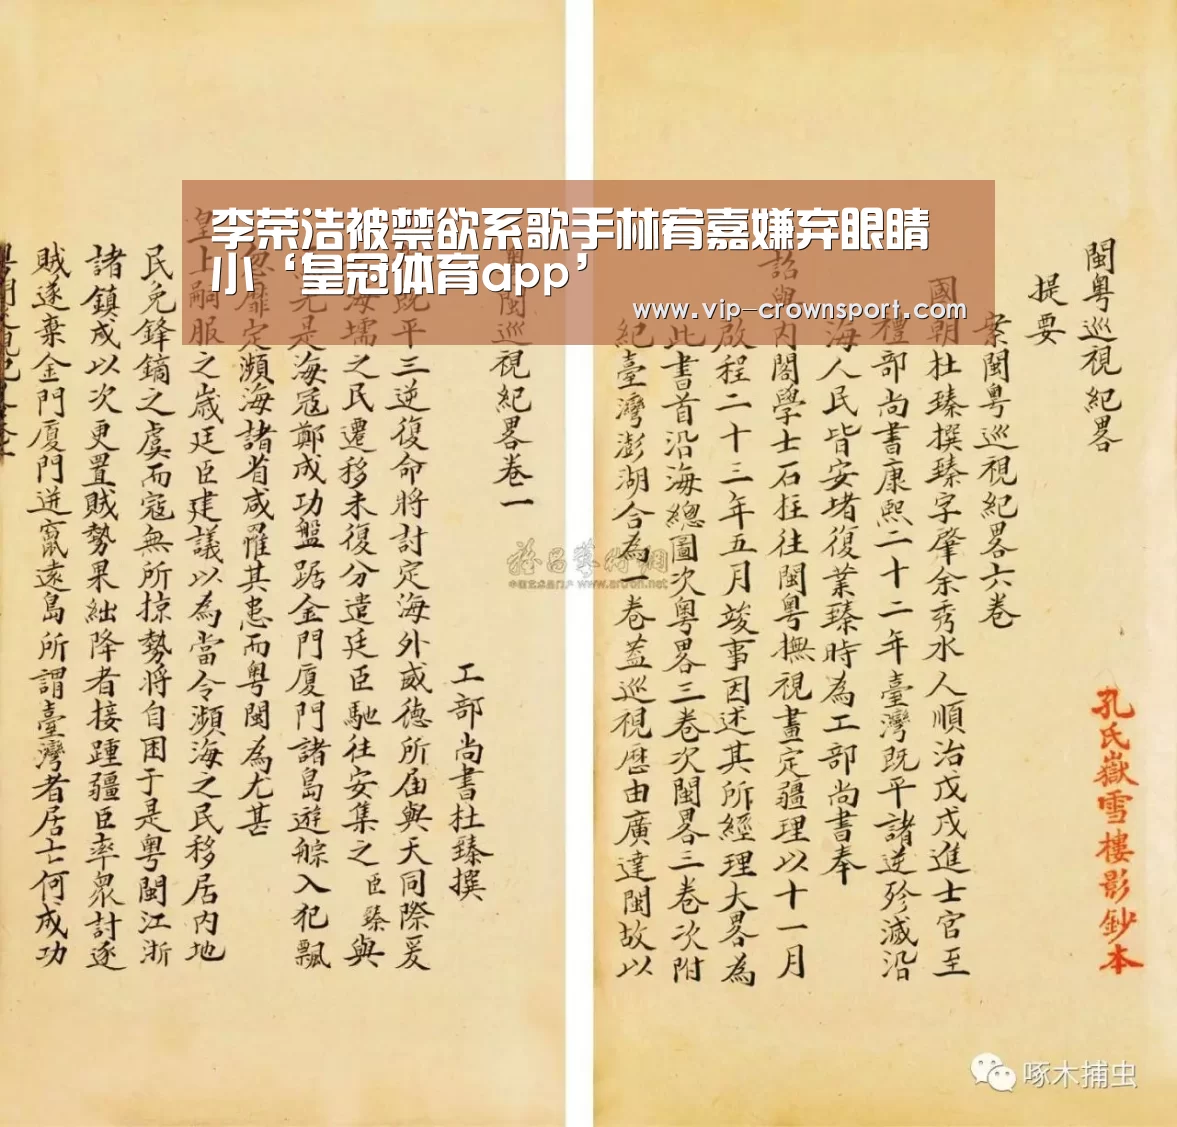 李荣浩被禁欲系歌手林宥嘉嫌弃眼睛
小‘皇冠体育app’
www.vip-crownsport.com
閩粤巡視紀畧
提要
案閩粤巡視紀畧六卷
國朝杜臻撰臻字肇余秀水人順治戊戌進士官至
禮部尚書康熙二十二年臺灣既平諸逆殄滅沿
海人民皆安堵復業臻時為工部尚書奉
詔與内閣學士石柱往閩粤撫視畫定疆理以十一月
啟程二十三年五月竣事因述其所經理大畧為
此書首沿海總圖次粤畧三卷次閩畧三卷次附
紀臺灣澎湖合為一卷蓋巡視歷由廣達閩故以
孔氏嶽雪樓影鈔本
閩巡視紀畧卷一
工部尚書杜臻撰
既平三逆復命將討定海外威德所屆與天同際爰
海壖之民遷移未復分遣廷臣馳往安集之臣臻與
先是海寇鄭成功盤踞金門厦門諸島遊䑸入犯飄
忽靡定瀕海諸省咸罹其患而粤閩為尤甚
皇上嗣服之歲廷臣建議以為當令瀕海之民移居内地
民免鋒鏑之虞而寇無所掠勢將自困于是粤閩江浙
諸鎮成以次更置賊勢果絀降者接踵疆臣率衆討逐
賊遂棄金門厦門迸竄遠島所謂臺灣者居亡何成功
雅昌藝術網
中国艺术品门户 www.artron.net
啄木捕虫